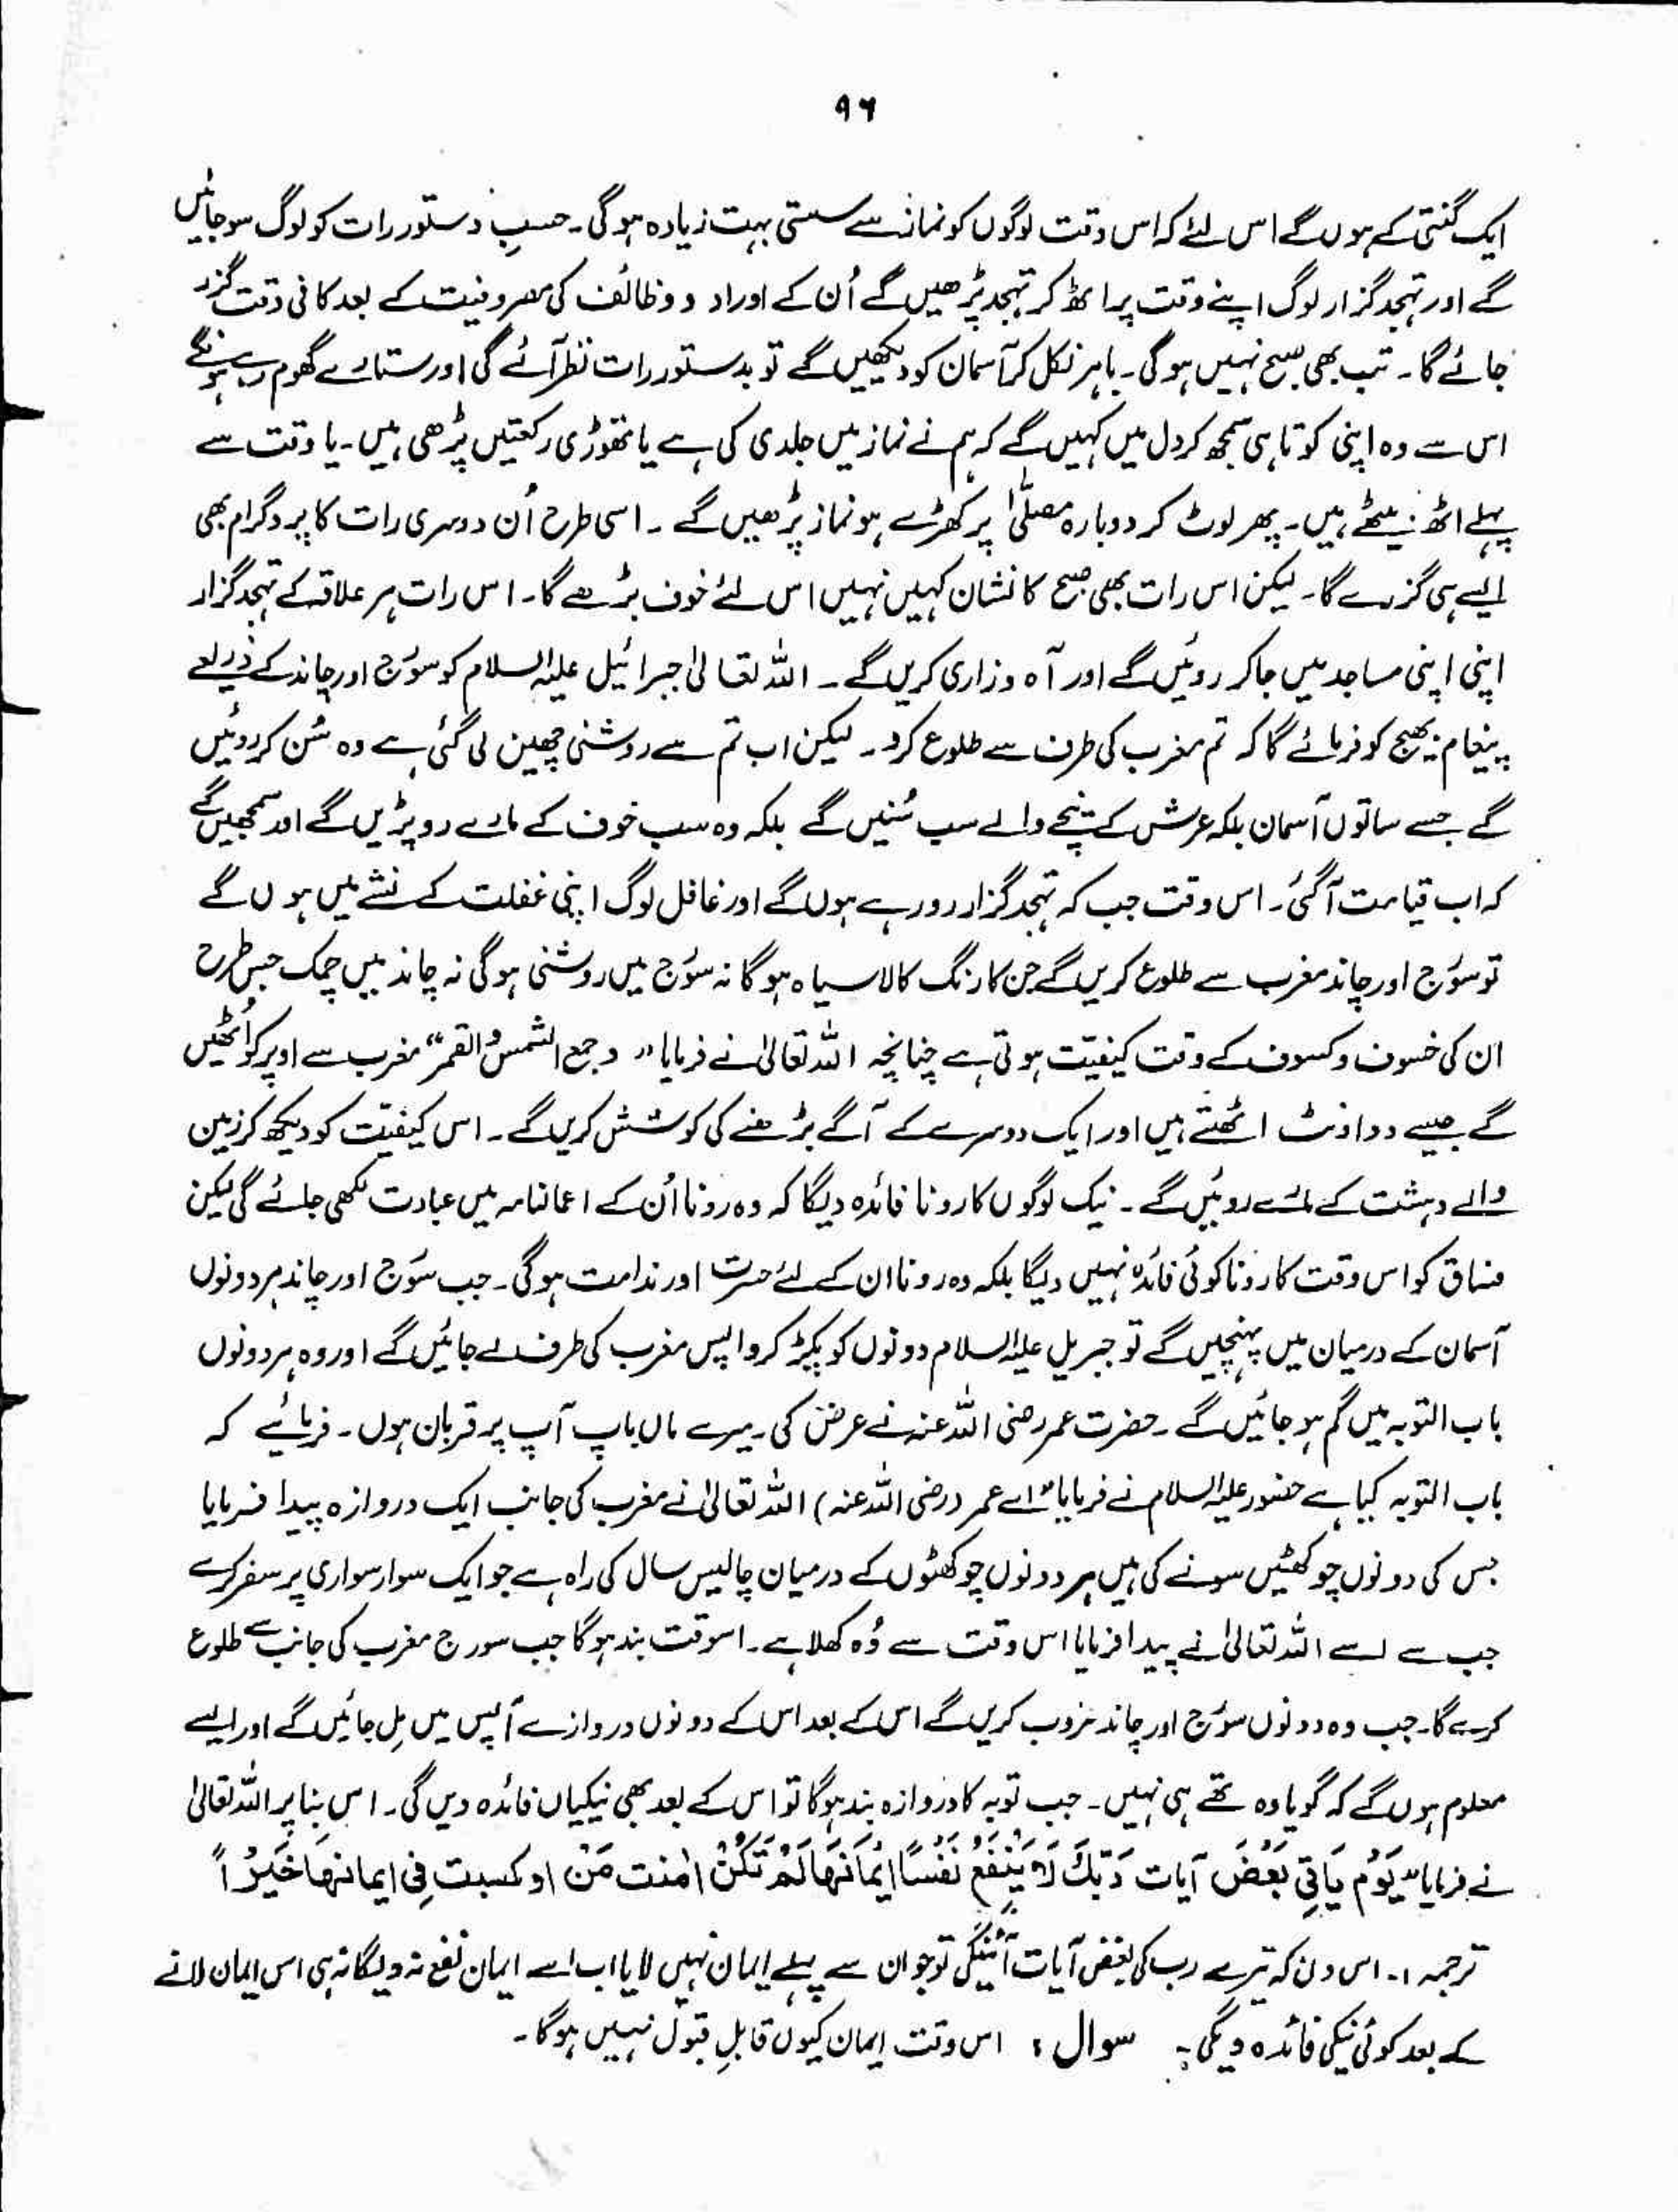 ۹۶
ایک گنتی کے ہوں گے اس لئے کہ اس وقت لوگوں کو نماز سے سستی بہت زیادہ ہو گی۔ حسبِ دستور رات کو لوگ سو جائیں
گے اور تہجد گزار لوگ اپنے وقت پر اٹھ کر تہجد پڑھیں گے اُن کے اوراد و وظائف کی مصروفیت کے بعد کافی وقت گزر
جائے گا۔ تب بھی صبح نہیں ہو گی۔ باہر نکل کر آسمان کو دیکھیں گے تو بدستور رات نظر آئے گی اور ستارے گھوم رہے ہونگے
اس سے وہ اپنی کوتاہی سمجھ کر دل میں کہیں گے کہ ہم نے نماز میں جلدی کی ہے یا تھوڑی رکعتیں پڑھی ہیں۔ یا وقت سے
پہلے اٹھ بیٹھے ہیں۔ پھر لوٹ کر دوبارہ مصلّٰی پر کھڑے ہو نماز پڑھیں گے۔ اسی طرح اُن دوسری رات کا پروگرام بھی
ایسے ہی گزرے گا۔ لیکن اس رات بھی صبح کا نشان کہیں نہیں اس لئے خوف بڑھے گا۔ اس رات ہر علاقہ کے تہجد گزار
اپنی اپنی مساجد میں جا کر روئیں گے اور آہ وزاری کریں گے۔ اللہ تعالیٰ جبرائیل علیہ السلام کو سوُرج اور چاند کے ذریعے
پیغام بھیج کو فرمائے گا کہ تم مغرب کی طرف سے طلوع کرو۔ لیکن اب تم سے روشنی چھین لی گئی ہے وہ سُن کر روئیں
گے جسے ساتوں آسمان بلکہ عرش کے نیچے والے سب سُنیں گے بلکہ وہ سب خوف کے مارے رو پڑیں گے اور سمجھیں گے
کہ اب قیامت آ گئی۔ اس وقت جب کہ تہجد گزار رو رہے ہوں گے اور غافل لوگ اپنی غفلت کے نشے میں ہوں گے
تو سوُرج اور چاند مغرب سے طلوع کریں گے جن کا رنگ کالا سیاہ ہو گا نہ سوُرج میں روشنی ہو گی نہ چاند میں چمک جس طرح
ان کی خسوف و کسوف کے وقت کیفیّت ہوتی ہے چنانچہ اللہ تعالیٰ نے فرمایا "وجمع الشمس والقمر" مغرب سے اوپر کو اُٹھیں
گے جیسے دو اونٹ اٹھتے ہیں اور ایک دوسرے کے آگے بڑھنے کی کوشش کریں گے۔ اس کیفیّت کو دیکھ کر زمین
والے دہشت کے مارے روئیں گے۔ نیک لوگوں کا رونا فائدہ دیگا کہ وہ رونا اُن کے اعمالنامہ میں عبادت لکھی جائے گی لیکن
فساق کو اس وقت کا رونا کوئی فائدہ نہیں دیگا بلکہ وہ رونا ان کے لئے حسرت اور ندامت ہو گی۔ جب سوُرج اور چاند ہر دونوں
آسمان کے درمیان میں پہنچیں گے تو جبریل علیہ السلام دونوں کو پکڑ کر واپس مغرب کی طرف لے جائیں گے اور وہ ہر دونوں
باب التوبہ میں گم ہو جائیں گے۔ حضرت عمر رضی اللہ عنہ نے عرض کی۔ میرے ماں باپ آپ پر قربان ہوں۔ فرمائیے کہ
باب التوبہ کیا ہے حضور علیہ السلام نے فرمایا "اے عمر (رضی اللہ عنہ) اللہ تعالیٰ نے مغرب کی جانب ایک دروازہ پیدا فرمایا
جس کی دونوں چوکھٹیں سونے کی ہیں ہر دونوں چوکھٹوں کے درمیان چالیس سال کی راہ ہے جو ایک سوار سواری پر سفر کرے
جب سے اسے اللہ تعالیٰ نے پیدا فرمایا اس وقت سے وُہ کھلا ہے۔ اسوقت بند ہو گا جب سورج مغرب کی جانب سے طلوع
کرے گا۔ جب وہ دونوں سوُرج اور چاند غروب کریں گے اس کے بعد اس کے دونوں دروازے آپس میں مِل جائیں گے اور ایسے
معلوم ہوں گے کہ گویا وہ تھے ہی نہیں۔ جب توبہ کا دروازہ بند ہو گا تو اس کے بعد بھی نیکیاں فائدہ دیں گی۔ اس بنا پر اللہ تعالیٰ
نے فرمایا "یَوْمَ یَاتِی بَعْضَ آیات رَبِّكَ لَا یَنْفَعُ نَفْسًا اِیْمَانَهَا لَمْ تَکُنْ اٰمنت مَنْ او کسبت فِی ایمانها خَیْرًا
ترجمہ :۔ اس دن کہ تیرے رب کی بعض آیات آئینگی تو جو ان سے پہلے ایمان نہیں لایا اب اسے ایمان نفع نہ دیگا نہ ہی اس ایمان لانے
کے بعد کوئی نیکی فائدہ دیگی۔ سوال : اس وقت ایمان کیوں قابلِ قبول نہیں ہو گا۔